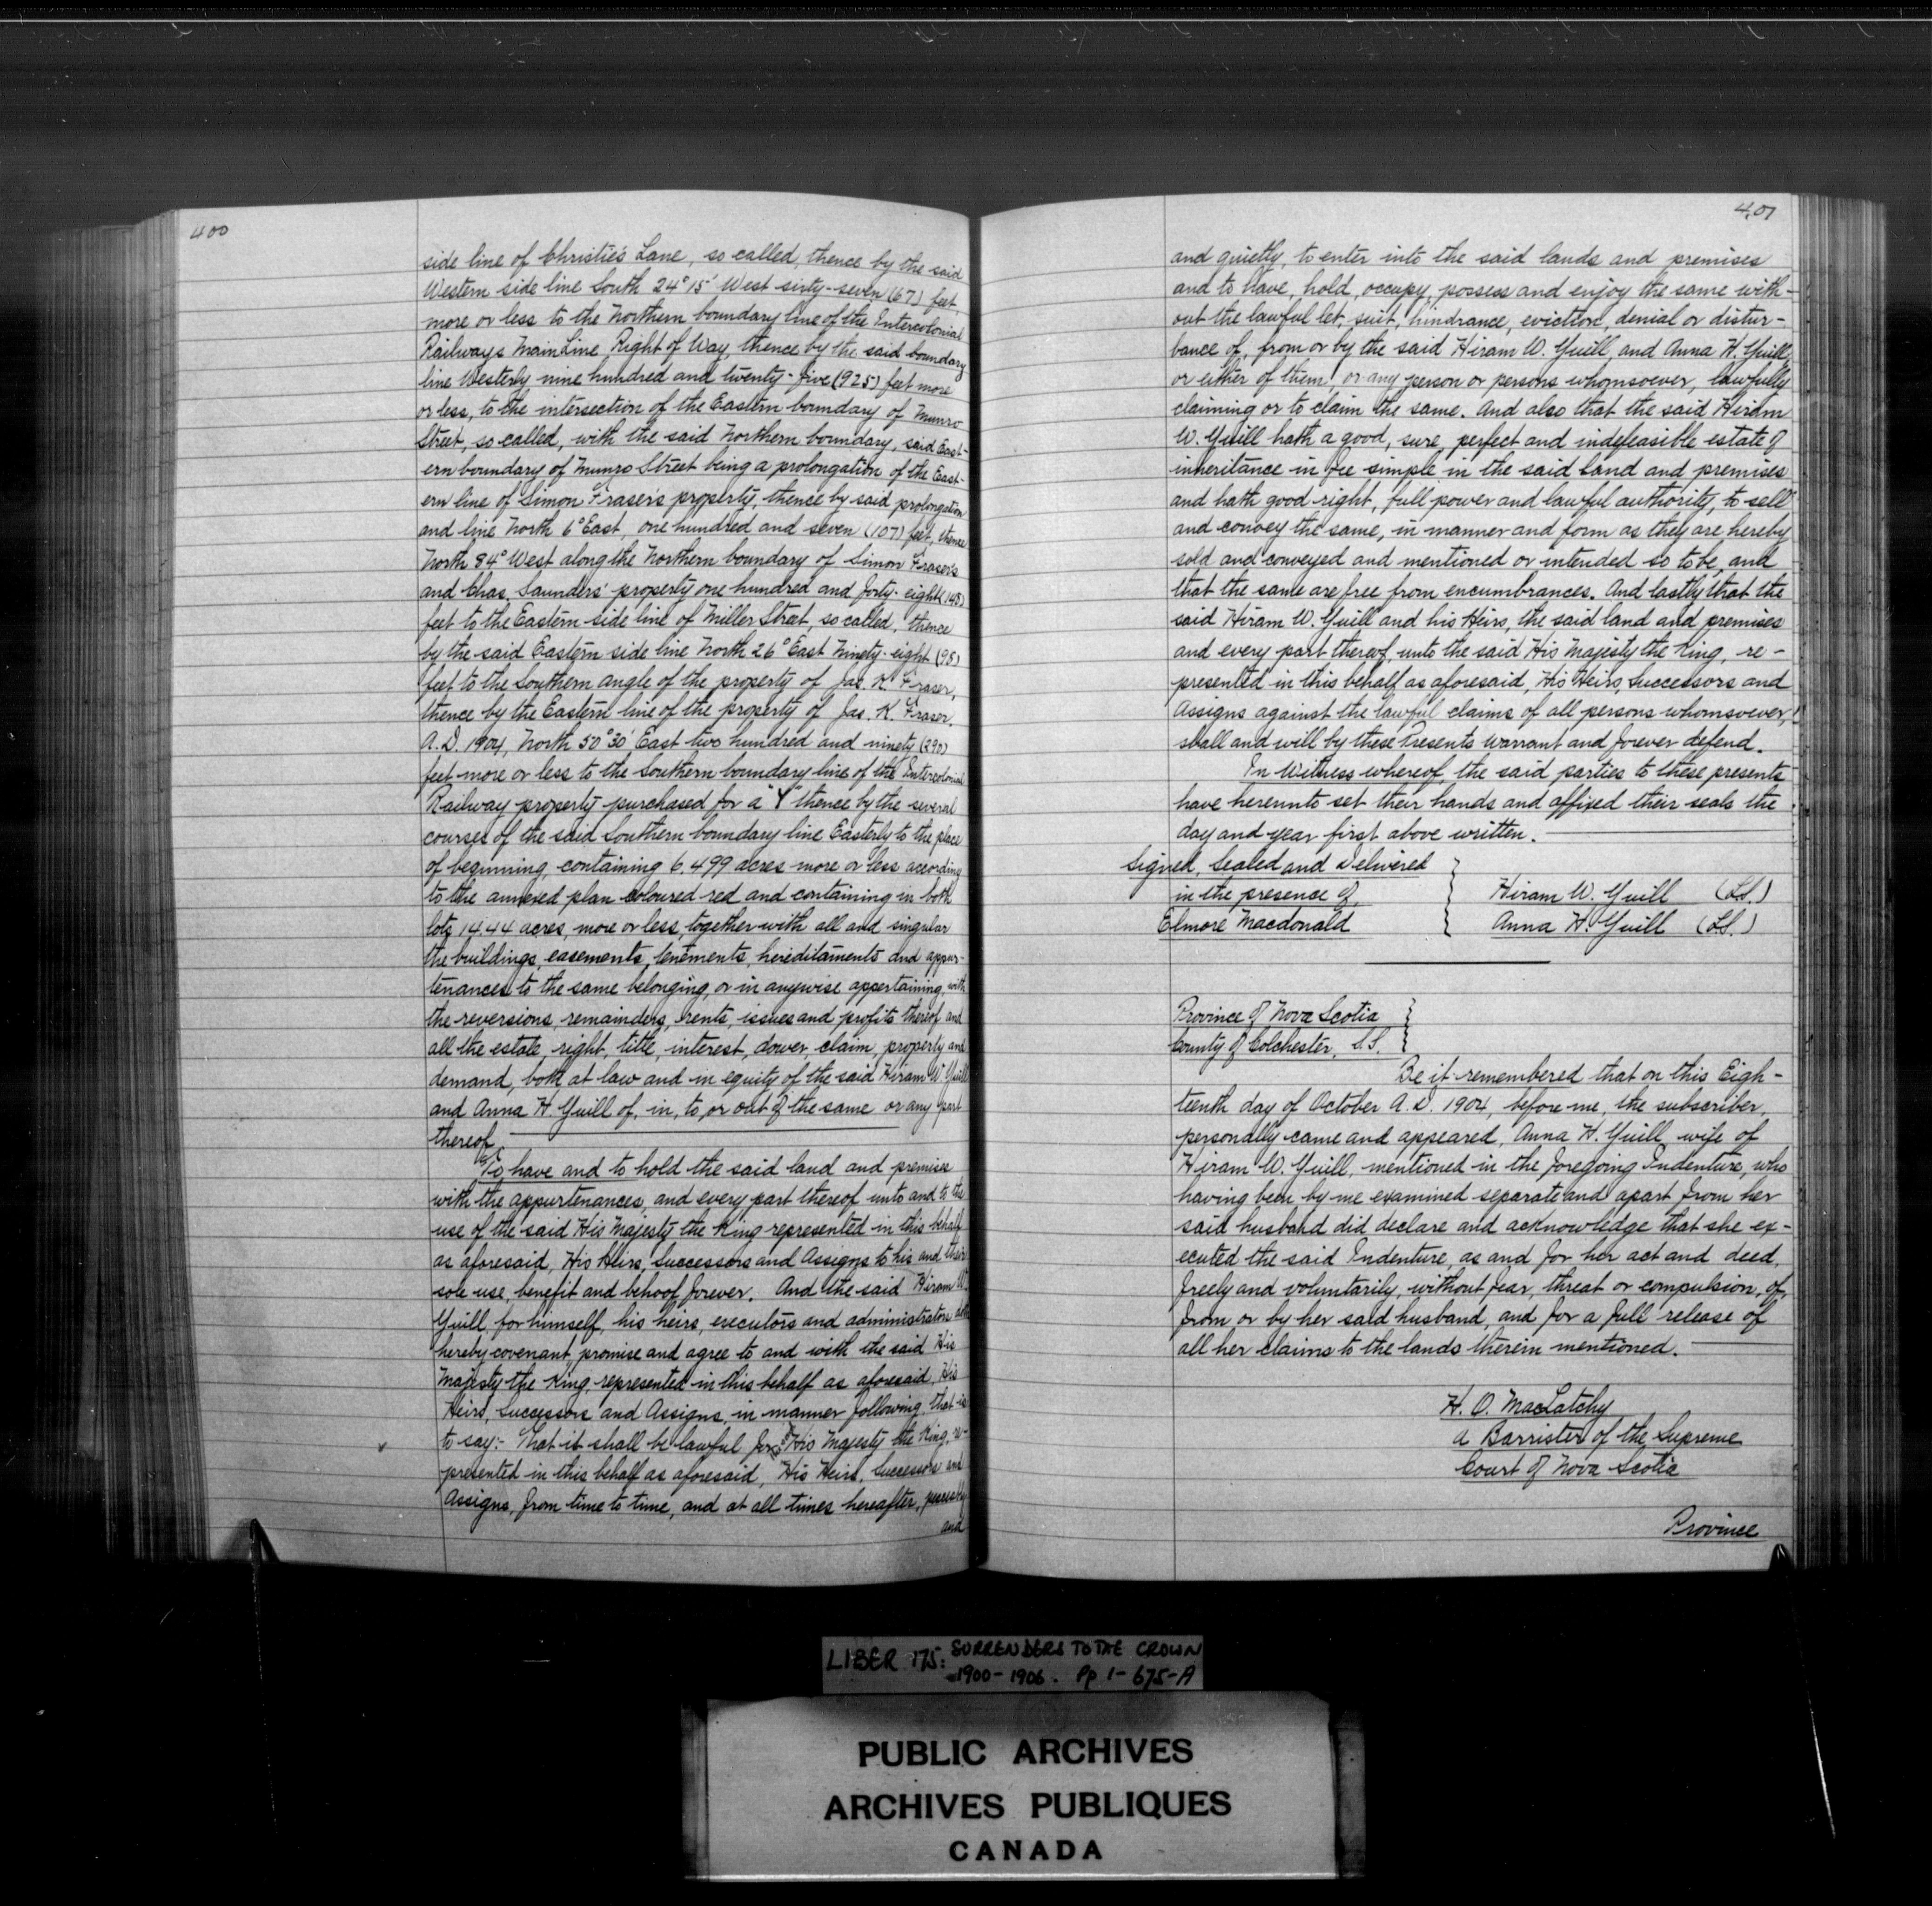 400
side line of Christie's Lane, so called, thence by the said
Western side line South 24° 15' West sixty-seven (67) feet,
more or less to the Northern boundary line of the Intercolonial
Railways Main Line Right of Way, thence by the said boundary
line Westerly nine hundred and twenty-five (925) feet more
or less, to the intersection of the Eastern boundary of Munro
Street, so called, with the said Northern boundary, said East-
ern boundary of Munro Street being a prolongation of the East-
ern line of Simon Fraser's property, thence by said prolongation
and line North 6° East, one hundred and seven (107) feet, thence
North 84° West along the Northern boundary of Simon Fraser's
and Chas. Saunders' property one hundred and forty-eight (148)
feet to the Eastern side line of Miller Street, so called, thence
by the said Eastern side line North 26° East Ninety-eight (98)
feet to the Southern angle of the property of Jas. K. Fraser,
thence by the Eastern line of the property of Jas. K. Fraser
A.D. 1904, North 50° 30' East two hundred and ninety (290)
feet more or less to the Southern boundary line of the Intercolonial
Railway property purchased for a "Y" thence by the several
courses of the said Southern boundary line Easterly to the place
of beginning, containing 6.499 acres more or less according
to the annexed plan coloured red and containing in both
lots 14.44 acres, more or less, together with all and singular
the buildings, easements, tenements, hereditaments and appur-
tenances to the same belonging, or in anywise appertaining, with
the reversions, remainders, rents, issues and profits thereof and
all the estate, right, title, interest, dower, claim, property and
demand, both at law and in equity of the said Hiram W. Yuill
and Anna H. Yuill of, in, to, or out of the same or any part
thereof.
To have and to hold the said land and premises
with the appurtenances, and every part thereof unto and to the
use of the said His Majesty the King represented in this behalf
as aforesaid, His Heirs, Successors and Assigns to his and their
sole use, benefit and behoof forever. And the said Hiram W.
Yuill, for himself, his heirs, executors and administrators doth
hereby covenant, promise and agree to and with the said His
Majesty the King, represented in this behalf as aforesaid, His
Heirs, Successors and Assigns, in manner following, that is
to say:- That it shall be lawful for His Majesty the King, re-
presented in this behalf as aforesaid, His Heirs, Successors and
Assigns, from time to time, and at all times hereafter, peaceably
and
401
and quietly, to enter into the said lands and premises
and to have, hold, occupy, possess and enjoy the same with-
out the lawful let, suit, hindrance, eviction, denial or distur-
bance of, from or by the said Hiram W. Yuill, and Anna H. Yuill,
or either of them, or any person or persons whomsoever, lawfully
claiming or to claim the same. And also that the said Hiram
W. Yuill hath a good, sure, perfect and indefeasible estate of
inheritance in fee simple in the said land and premises
and hath good right, full power and lawful authority, to sell
and convey the same, in manner and form as they are hereby
sold and conveyed and mentioned or intended so to be, and
that the same are free from encumbrances. And lastly that the
said Hiram W. Yuill and his Heirs, the said land and premises
and every part thereof, unto the said His Majesty the King, re-
presented in this behalf as aforesaid, His Heirs, Successors and
Assigns against the lawful claims of all persons whomsoever,
shall and will by these Presents warrant and forever defend.
In Witness whereof, the said parties to these presents
have hereunto set their hands and affixed their seals the
day and year first above written.
Signed, Sealed and Delivered
in the presence of Hiram W. Yuill (L.S.)
Elmore Macdonald Anna H. Yuill (L.S.)
Province of Nova Scotia
County of Colchester, S.S.
Be it remembered that on this Eigh-
teenth day of October A.D. 1904, before me, the subscriber,
personally came and appeared, Anna H. Yuill, wife of
Hiram W. Yuill, mentioned in the foregoing Indenture, who
having been by me examined separate and apart from her
said husband did declare and acknowledge that she ex-
ecuted the said Indenture, as and for her act and deed,
freely and voluntarily, without fear, threat or compulsion, of,
from or by her said husband, and for a full release of
all her claims to the lands therein mentioned.
H. O. MacLatchy
A Barrister of the Supreme
Court of Nova Scotia
Province
LIBER 175: SURRENDERS TO THE CROWN
1900-1906. Pp 1-675-A
PUBLIC ARCHIVES
ARCHIVES PUBLIQUES
CANADA